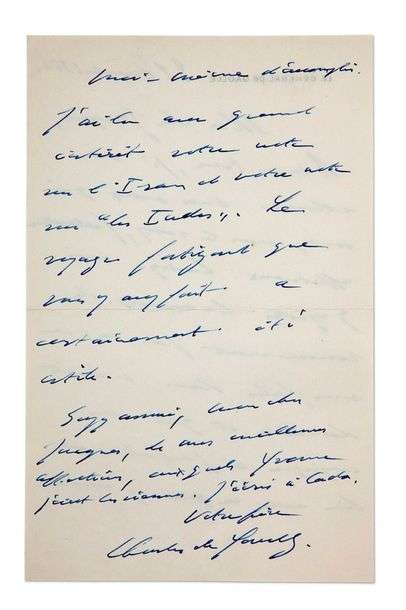 moi-même d'accomplir.
J'ai lu avec grand
intérêt votre note
sur l'Iran et votre note
sur "les Indes". Le
voyage fatigant que
vous y avez fait a
certainement été
utile.
Soyez assuré, mon cher
Jacques, de mes meilleures
affections, auxquels Yvonne
joint les siennes. J'écris à Cada.
Votre frère
Charles de Gaulle.